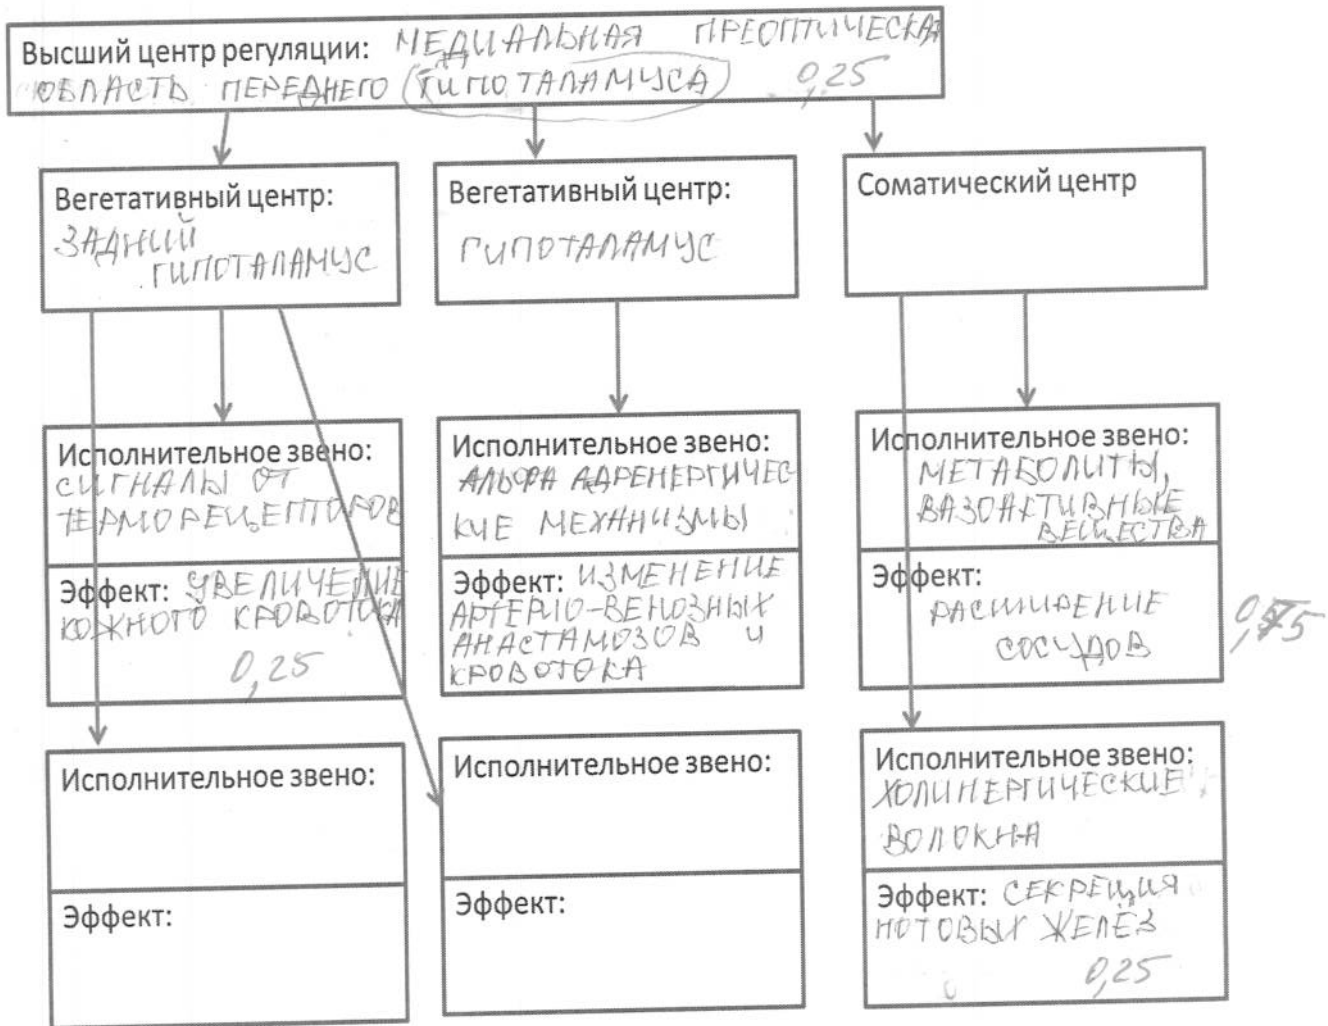 Высший центр регуляции: МЕДИАЛЬНАЯ ПРЕОПТИЧЕСКАЯ
ОБЛАСТЬ ПЕРЕДНЕГО ГИПОТАЛАМУСА 0,25
Вегетативный центр:
ЗАДНИЙ
ГИПОТАЛАМУС
Вегетативный центр:
ГИПОТАЛАМУС
Соматический центр
Исполнительное звено:
СИГНАЛЫ ОТ
ТЕРМОРЕЦЕПТОРОВ
Эффект: УВЕЛИЧЕНИЕ
КОЖНОГО КРОВОТОКА
0,25
Исполнительное звено:
АЛЬФА АДРЕНЕРГИЧЕС
КИЕ МЕХАНИЗМЫ
Эффект: ИЗМЕНЕНИЕ
АРТЕРИО-ВЕНОЗНЫХ
АНАСТАМОЗОВ И
КРОВОТОКА
Исполнительное звено:
МЕТАБОЛИТЫ,
ВАЗОАКТИВНЫЕ
ВЕЩЕСТВА
Эффект:
РАСШИРЕНИЕ
СОСУДОВ
Исполнительное звено:
Эффект:
Исполнительное звено:
Эффект:
Исполнительное звено:
ХОЛИНЕРГИЧЕСКИЕ
ВОЛОКНА
Эффект: СЕКРЕЦИЯ
ПОТОВЫХ ЖЕЛЁЗ
0,25